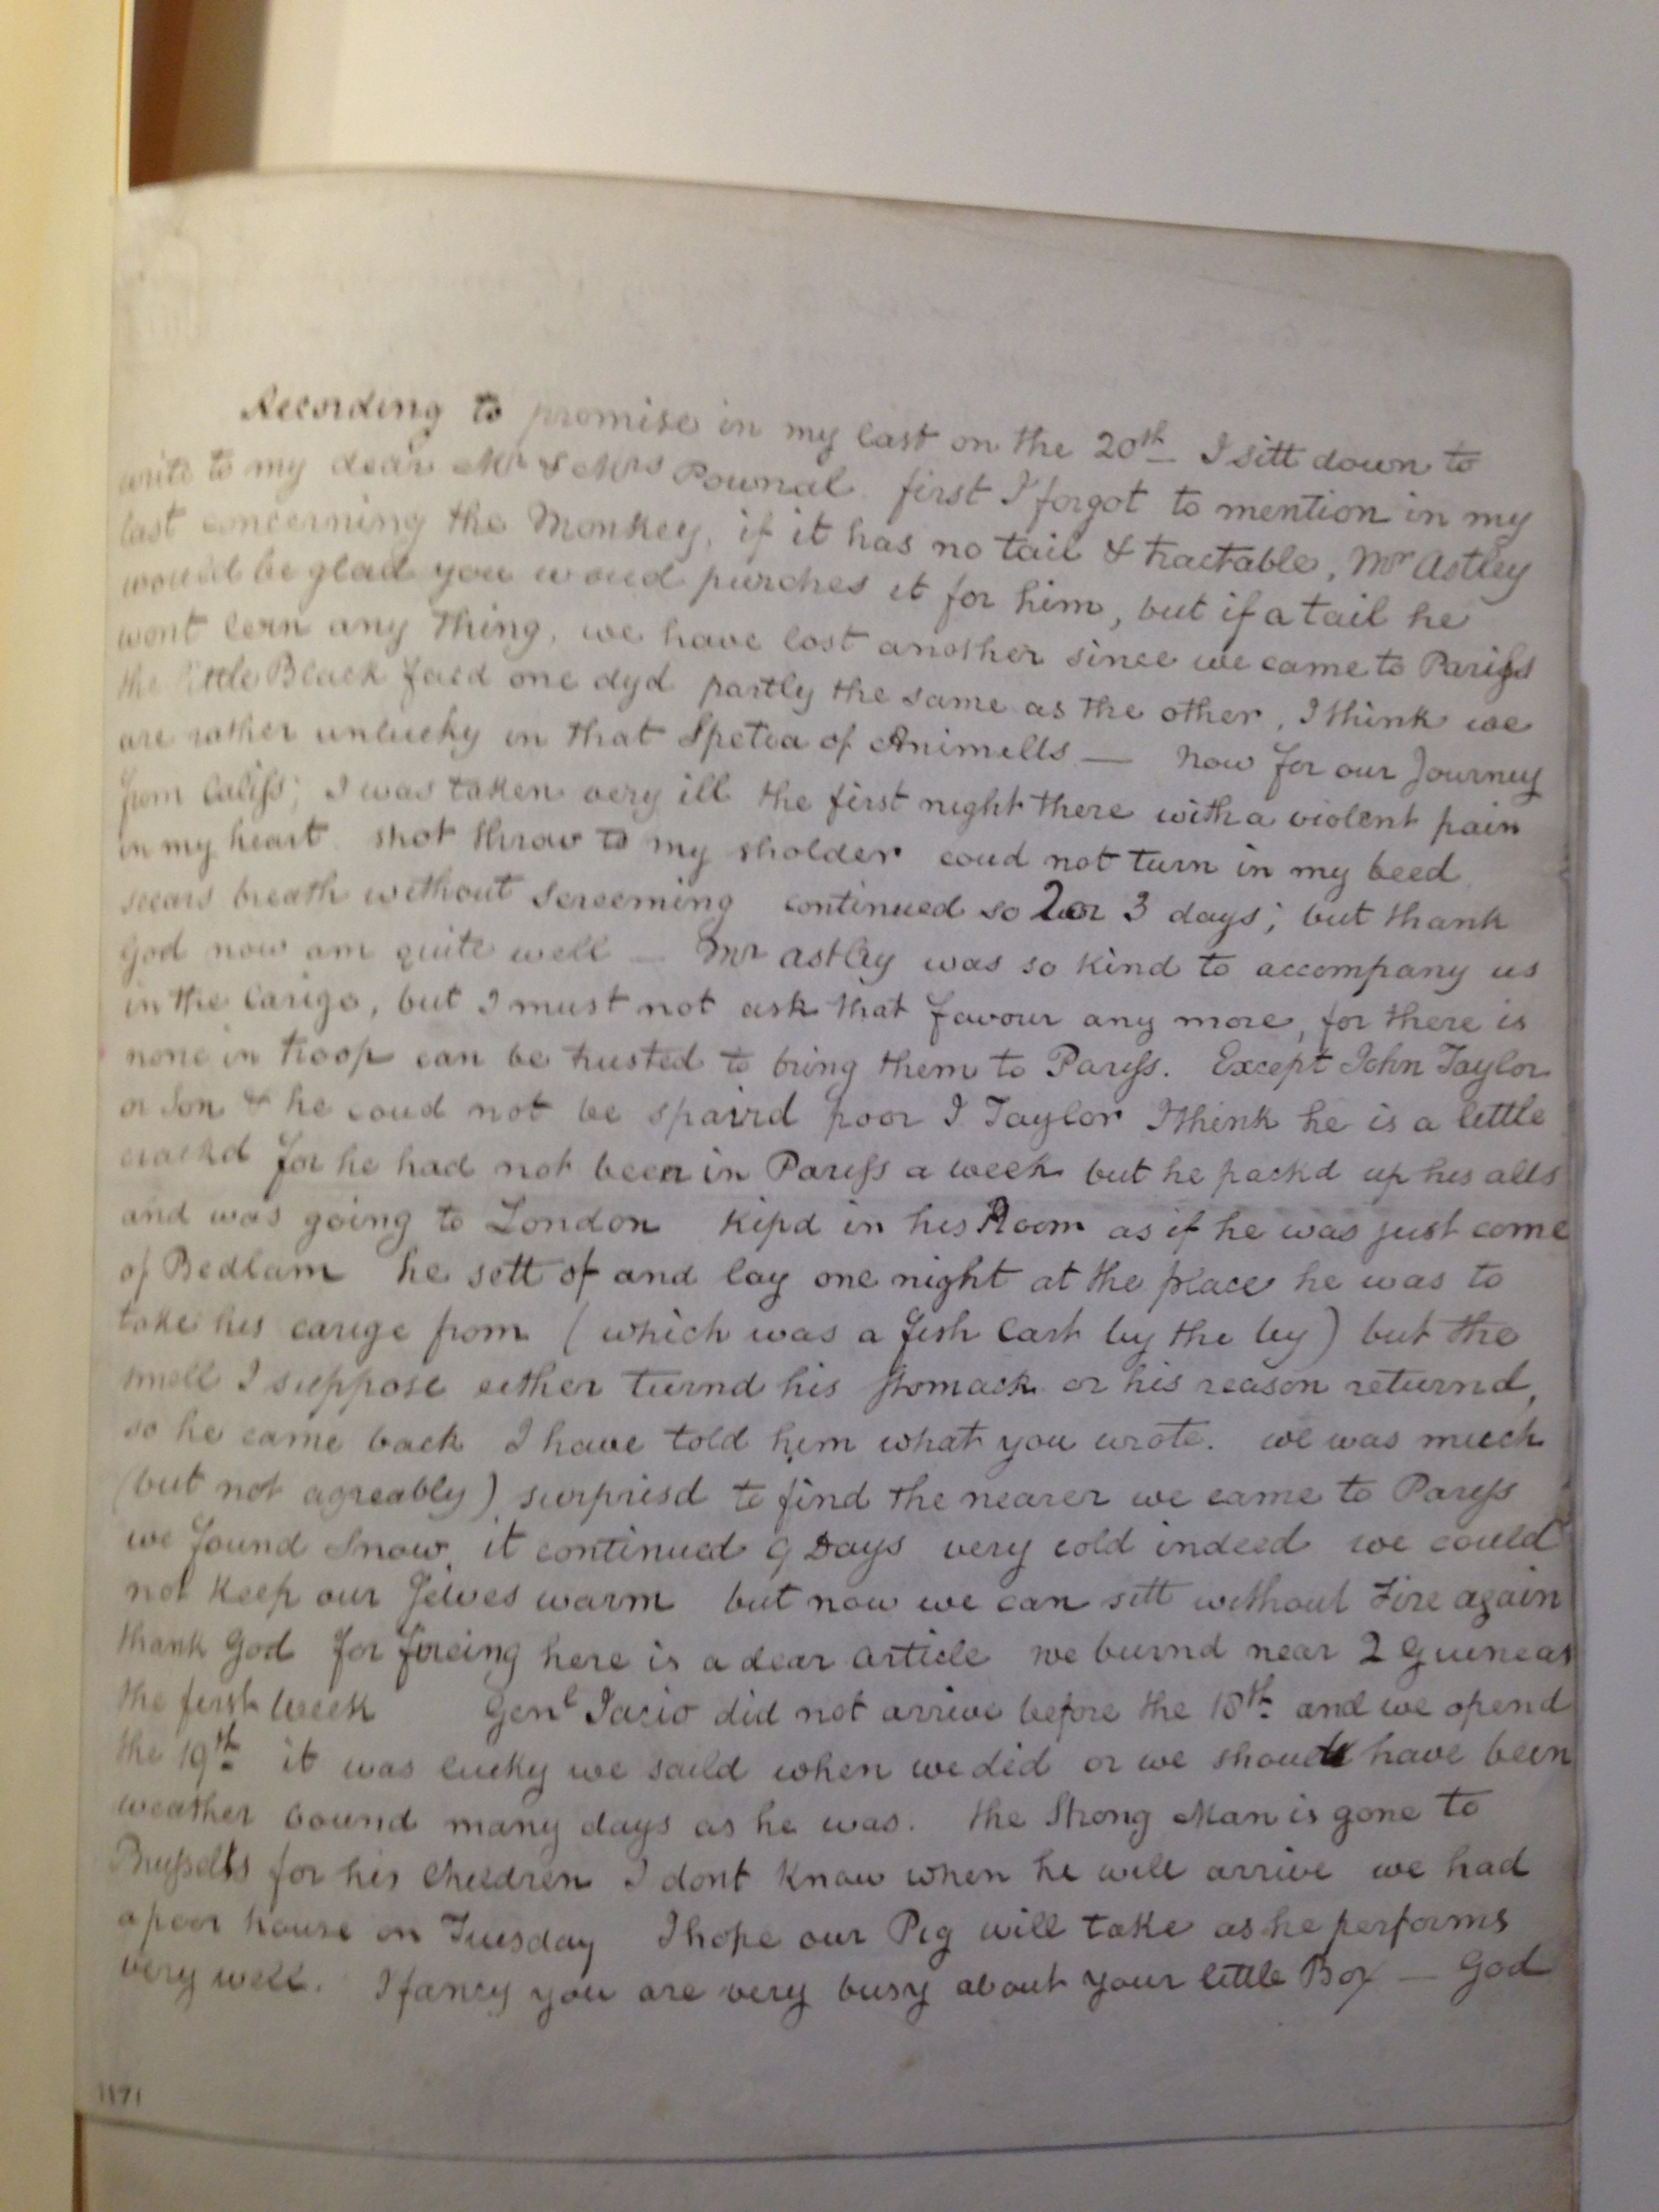 According to promise in my last on the 20th I sitt down to
write to my dear Mr & Mrs Pownal. first I forgot to mention in my
last concerning the Monkey, if it has no tail & tractable, Mr Astley
would be glad you woud purches it for him, but if a tail he
wont lern any thing, we have lost another since we came to Pariss
the little Black faced one dyd partly the same as the other, I think we
are rather unlucky in that Spetia of Animells — Now for our Journey
from Caliss; I was taken very ill the first night there with a violent pain
in my heart shot throw to my sholder coud not turn in my beed
scears breath without Screeming continued so 2 or 3 days; but thank
God now am quite well — Mr Astley was so kind to accompany us
in the Carige, but I must not ask that favour any more, for there is
none in troop can be trusted to bring them to Paryss. Except John Taylor
or Son & he coud not be spaird poor J Taylor I think he is a little
crackd for he had not been in Paryss a week but he packd up his alls
and was going to London kipd in his Room as if he was just come
of Bedlam he sett of and lay one night at the place he was to
take his carige from (which was a fish Cart by the by) but the
smell I suppose either turnd his stomack or his reason returnd,
so he came back I have told him what you wrote. we was much
(but not agreably) surprisd to find the nearer we came to Paryss
we found Snow, it continued 9 Days very cold indeed we could
not keep our Selves warm but now we can sett without Fire again
thank God for fireing here is a dear article we burnd near 2 Guineas
the first Week Genl Jacio did not arrive before the 18th and we opend
the 19th it was lucky we saild when we did or we should have been
weather bound many days as he was. the Strong Man is gone to
Brussells for his Children I dont know when he will arrive we had
a poor house on Tuesday I hope our Pig will take as he performs
very well. I fancy you are very busy about your little Boy — God
1171